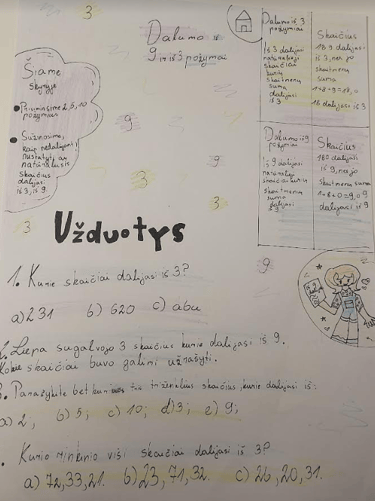 3
Dalumo iš
9 ir iš 3 požymiai
Šiame
skyriuje
Prisiminsime 2, 5, 10
požymius
Sužinosime,
kaip nedalijant
nustatyti, ar
natūralusis
skaičius
dalijasi
iš 3, iš 9
Dalumo iš 3
požymiai
Iš 3 dalijasi
natūralieji
skaičiai
kurių
skaitmenų
suma
dalijasi
iš 3
Skaičius
189 dalijasi
iš 3, nes jo
skaitmenų
suma
1+8+9=18, o
18 dalijasi iš 3
Dalumo iš 9
požymiai
Iš 9 dalijasi
natūralieji
skaičiai kurių
skaitmenų
suma
dalijasi
iš 9
Skaičius
180 dalijasi
iš 9, nes jo
skaitmenų suma
1+8+0=9, o 9
dalijasi iš 9
9
9
3
3
3
9
Užduotys
1. Kurie skaičiai dalijasi iš 3?
a) 231 b) 620 c) abu
2. Liepa sugalvojo 3 skaičius kurie dalijasi iš 9.
Kokie skaičiai buvo galimi užrašyti.
3. Parašykite bet kuriuos triženklius skaičius, kurie dalijasi iš:
a) 2, b) 5; c) 10; d) 3; e) 9;
Kurio rinkinio visi skaičiai dalijasi iš 3?
a) 72, 33, 21. b) 23, 71, 32. c) 26, 20, 31.